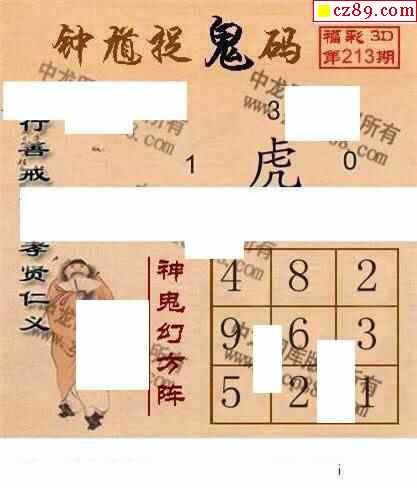 cz89.com
钟馗捉鬼码
福彩 3D
第213期
行善戒
孝贤仁义
3
1 虎 0
神鬼幻方阵
4 8 2
9 6 3
5 2 1
i